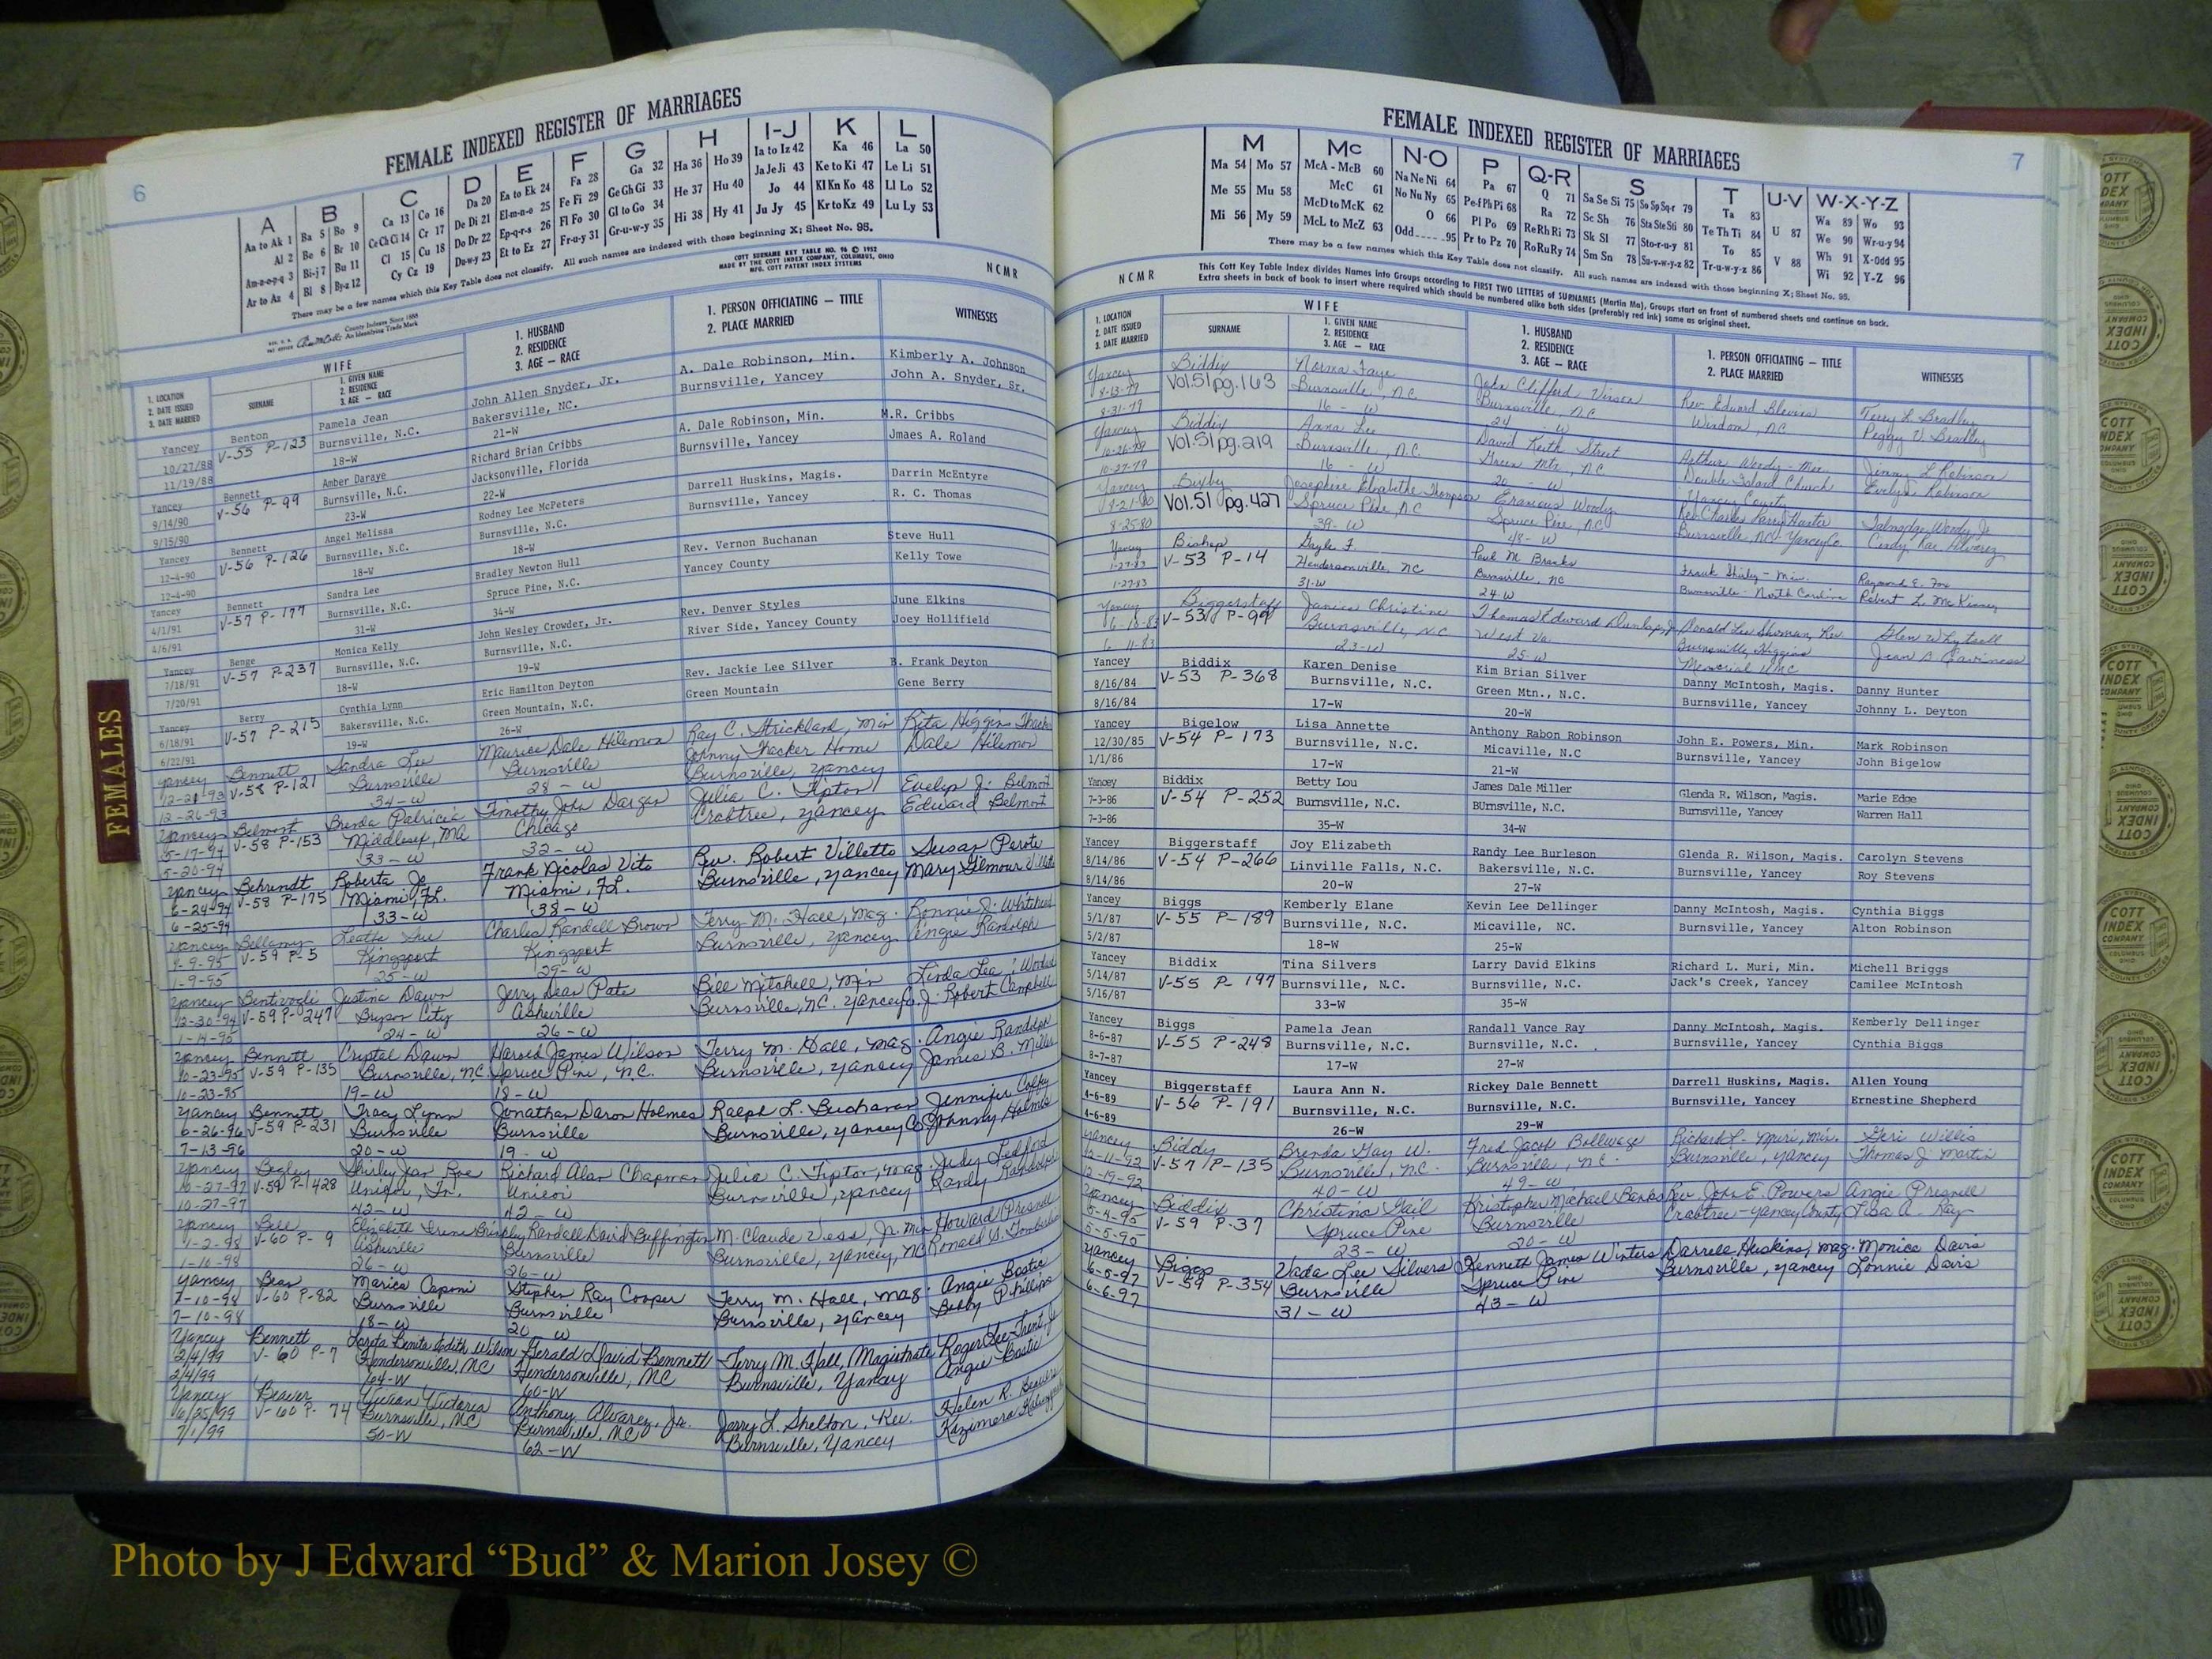 6
FEMALE INDEXED REGISTER OF MARRIAGES
A
Aa to Ak 1
Al 2
Am-n-o-p-q 3
Ar to Az 4
B
Ba 5 Bo 9
Be 6 Br 10
Bi-j 7 Bu 11
Bl 8 By-z 12
C
Ca 13 Co 16
Ce Ch Ci 14 Cr 17
Cl 15 Cu 18
Cy Cz 19
D
Da 20
De Di 21
Do Dr 22
Du-w-y 23
E
Ea to Ek 24
El-m-n-o 25
Ep-q-r-s 26
Et to Ez 27
F
Fa 28
Fe Fi 29
Fl Fo 30
Fr-u-y 31
G
Ga 32
Ge Gh Gi 33
Gl to Go 34
Gr-u-w-y 35
H
Ha 36 Ho 39
He 37 Hu 40
Hi 38 Hy 41
I-J
Ia to Iz 42
Ja Je Ji 43
Jo 44
Ju Jy 45
K
Ka 46
Ke to Ki 47
Kl Kn Ko 48
Kr to Kz 49
L
La 50
Le Li 51
Ll Lo 52
Lu Ly 53
There may be a few names which this Key Table does not classify. All such names are indexed with those beginning X; Sheet No. 95.
County Indexes Since 1888
An Identifying Trade Mark
COTT SURNAME KEY TABLE NO. 96 © 1952
MADE BY THE COTT INDEX COMPANY, COLUMBUS, OHIO
MFG. COTT PATENT INDEX SYSTEMS
NCMR
1. LOCATION
2. DATE ISSUED
3. DATE MARRIED
WIFE
SURNAME
1. GIVEN NAME
2. RESIDENCE
3. AGE — RACE
1. HUSBAND
2. RESIDENCE
3. AGE — RACE
1. PERSON OFFICIATING — TITLE
2. PLACE MARRIED
WITNESSES
Yancey Benton Pamela Jean John Allen Snyder, Jr. A. Dale Robinson, Min. Kimberly A. Johnson
10/27/88 V-55 P-123 Burnsville, N.C. Bakersville, NC. Burnsville, Yancey John A. Snyder, Sr.
11/19/88 18-W 21-W
Yancey Bennett Amber Daraye Richard Brian Cribbs A. Dale Robinson, Min. M.R. Cribbs
9/14/90 V-56 P-99 Burnsville, N.C. Jacksonville, Florida Burnsville, Yancey Jmaes A. Roland
9/15/90 23-W 22-W
Yancey Bennett Angel Melissa Rodney Lee McPeters Darrell Huskins, Magis. Darrin McEntyre
12-4-90 V-56 P-126 Burnsville, N.C. Burnsville, N.C. Burnsville, Yancey R. C. Thomas
12-4-90 18-W 18-W
Yancey Bennett Sandra Lee Bradley Newton Hull Rev. Vernon Buchanan Steve Hull
4/1/91 V-57 P-177 Burnsville, N.C. Spruce Pine, N.C. Yancey County Kelly Towe
4/6/91 31-W 34-W
Yancey Benge Monica Kelly John Wesley Crowder, Jr. Rev. Denver Styles June Elkins
7/18/91 V-57 P-237 Burnsville, N.C. Burnsville, N.C. River Side, Yancey County Joey Hollifield
7/20/91 18-W 19-W
Yancey Berry Cynthia Lynn Eric Hamilton Deyton Rev. Jackie Lee Silver B. Frank Deyton
6/18/91 V-57 P-215 Bakersville, N.C. Green Mountain, N.C. Green Mountain Gene Berry
6/22/91 19-W 26-W
Yancey Bennett Sandra Lee Maurice Dale Hilemon Ray C. Strickland, Min Rita Higgins Thacker
12-21-93 V-58 P-121 Burnsville Burnsville Johnny Thacker Home Dale Hilemon
12-26-93 34-W 28-W Burnsville, Yancey
Yancey Belmont Brenda Patricia Timothy John Dargan Julia C. Tipton Evelyn J. Belmont
5-17-94 V-58 P-153 Middlesex, MA Chicago Crabtree, Yancey Edward Belmont
5-20-94 33-W 32-W
Yancey Behrendt Roberta Jo Frank Nicolas Vito Rev. Robert Villetto Susan Perote
6-24-94 V-58 P-175 Miami, FL. Miami, FL. Burnsville, Yancey Mary Gilmour
6-25-94 33-W 38-W
Yancey Bellamy Leatha Sue Charles Randall Brown Terry M. Hall, Mag. Ronnie
1-9-95 V-59 P-5 Kingsport Kingsport Burnsville, Yancey Angie Randolph
1-9-95 25-W 29-W
Yancey Bentivogli Justina Dawn Jerry Dean Pate Bill Mitchell, Min Linda Lea
12-30-94 V-59 P-247 Bryson City Asheville Burnsville, NC. Yancey Co. J. Robert Campbell
1-14-95 24-W 26-W
Yancey Bennett Crystal Dawn Harold James Wilson Terry M. Hall, Mag. Angie Randolph
10-23-95 V-59 P-135 Burnsville, N.C. Spruce Pine, N.C. Burnsville, Yancey James B. Miller
10-23-95 19-W 18-W
Yancey Bennett Tracy Lynn Jonathan Daron Holmes Ralph L. Buchanan Jennifer
6-26-96 V-59 P-231 Burnsville Burnsville Burnsville, Yancey Co Johnny Holmes
7-13-96 20-W 19-W
Yancey Begley Shirley Jean Roe Richard Alan Chapman Julia C. Tipton, Mag. Judy Ledford
10-27-97 V-59 P-428 Unicoi, Tn. Unicoi Burnsville, Yancey Randy Randolph
10-27-97 42-W 42-W
Yancey Bell Elizabeth Irene Brindley Randall David Buffington M. Claude Vess, Jr. Min Howard Presnell
1-2-98 V-60 P-9 Asheville Burnsville Burnsville, Yancey, NC Ronald S.
1-10-98 26-W 26-W
Yancey Bean Marica Caponi Stephen Ray Cooper Terry M. Hall, Mag. Angie Bostic
7-10-98 V-60 P-82 Burnsville Burnsville Burnsville, Yancey Bobby Phillips
7-10-98 18-W 20 W
Yancey Bennett Lareta Benita Edith Wilson Gerald David Bennett Terry M. Hall, Magistrate Roger Lee Trent, Jr.
2/4/99 V-60 P-7 Hendersonville, NC Hendersonville, NC Burnsville, Yancey Angie Bostic
2/4/99 64-W 60-W
Yancey Beaver Vivian Victoria Anthony Alvarez, Jr. Jerry L. Shelton, Rev. Helen R. Beavers
6/25/99 V-60 P-74 Burnsville, NC Burnsville, NC Burnsville, Yancey Kazimera
7/1/99 50-W 62-W
FEMALES
FEMALE INDEXED REGISTER OF MARRIAGES
7
M
Ma 54 Mo 57
Me 55 Mu 58
Mi 56 My 59
Mc
McA - McB 60
McC 61
McD to McK 62
McL to McZ 63
N-O
Na Ne Ni 64
No Nu Ny 65
O 66
Odd 95
P
Pa 67
Pe-f Ph Pi 68
Pl Po 69
Pr to Pz 70
Q-R
Q 71
Ra 72
Re Rh Ri 73
Ro Ru Ry 74
S
Sa Se Si 75 So Sp Sq-r 79
Sc Sh 76 Sta Ste Sti 80
Sk Sl 77 Sto-r-u-y 81
Sm Sn 78 Su-v-w-y-z 82
T
Ta 83
Te Th Ti 84
To 85
Tr-u-w-y-z 86
U-V
U 87
V 88
W-X-Y-Z
Wa 89 Wo 93
We 90 Wr-u-y 94
Wh 91 X-Odd 95
Wi 92 Y-Z 96
There may be a few names which this Key Table does not classify. All such names are indexed with those beginning X; Sheet No. 95.
NCMR
This Cott Key Table Index divides Names into Groups according to FIRST TWO LETTERS of SURNAMES (Martin Ma), Groups start on front of numbered sheets and continue on back.
Extra sheets in back of book to insert where required which should be numbered alike both sides (preferably red ink) same as original sheet.
1. LOCATION
2. DATE ISSUED
3. DATE MARRIED
WIFE
SURNAME
1. GIVEN NAME
2. RESIDENCE
3. AGE — RACE
1. HUSBAND
2. RESIDENCE
3. AGE — RACE
1. PERSON OFFICIATING — TITLE
2. PLACE MARRIED
WITNESSES
Yancey Biddix Norma Faye John Clifford Vinson Rev. Edward Blevins Terry L. Bradley
8-13-79 Vol.51 pg.163 Burnsville, N.C. Burnsville, N.C. Windom, NC Peggy V. Bradley
8-31-79 16 - W 24 W
Yancey Biddix Anna Lee David Keith Street Arthur Woody - Min. Jenny L Robinson
10-26-79 Vol.51 pg.219 Burnsville, N.C. Green Mtn., N.C Double Island Church Evelyn Robinson
10-27-79 16 - W 20 - W Yancey County
Yancey Bixby Josephine Elizabeth Thompson Erancous Woody Rev. Charles Larry Hunter Talmadge Woody Jr
8-21-80 Vol.51 pg.427 Spruce Pine, NC Spruce Pine, NC Burnsville, NC Yancey Co. Cindy Rae Alvarez
8-25-80 39-W 48-W
Yancey Bishop Gayle F Paul M. Branks Frank Shirley - Min. Raymond E. Fox
1-27-83 V-53 P-14 Hendersonville, NC Burnsville, NC Burnsville - North Carolina Robert L. McKinney
1-27-83 31-W 24-W
Yancey Biggerstaff Janice Christine Thomas Edward Dunlap, Jr Donald Lee Shuman, Rev. Glen Whytsell
6-10-83 V-53 P-99 Burnsville, N.C West Va. Burnsville, Higgins Jean B Caviness
6 11-83 23-W 25-W Memorial UMC
Yancey Biddix Karen Denise Kim Brian Silver Danny McIntosh, Magis. Danny Hunter
8/16/84 V-53 P-368 Burnsville, N.C. Green Mtn., N.C. Burnsville, Yancey Johnny L. Deyton
8/16/84 17-W 20-W
Yancey Bigelow Lisa Annette Anthony Rabon Robinson John E. Powers, Min. Mark Robinson
12/30/85 V-54 P-173 Burnsville, N.C. Micaville, N.C Burnsville, Yancey John Bigelow
1/1/86 17-W 21-W
Yancey Biddix Betty Lou James Dale Miller Glenda R. Wilson, Magis. Marie Edge
7-3-86 V-54 P-252 Burnsville, N.C. BUrnsville, N.C. Burnsville, Yancey Warren Hall
7-3-86 35-W 34-W
Yancey Biggerstaff Joy Elizabeth Randy Lee Burleson Glenda R. Wilson, Magis. Carolyn Stevens
8/14/86 V-54 P-266 Linville Falls, N.C. Bakersville, N.C. Burnsville, Yancey Roy Stevens
8/14/86 20-W 27-W
Yancey Biggs Kemberly Elane Kevin Lee Dellinger Danny McIntosh, Magis. Cynthia Biggs
5/1/87 V-55 P-189 Burnsville, N.C. Micaville, NC. Burnsville, Yancey Alton Robinson
5/2/87 18-W 25-W
Yancey Biddix Tina Silvers Larry David Elkins Richard L. Muri, Min. Michell Briggs
5/14/87 V-55 P-197 Burnsville, N.C. Burnsville, N.C. Jack's Creek, Yancey Camilee McIntosh
5/16/87 33-W 35-W
Yancey Biggs Pamela Jean Randall Vance Ray Danny McIntosh, Magis. Kemberly Dellinger
8-6-87 V-55 P-248 Burnsville, N.C. Burnsville, N.C. Burnsville, Yancey Cynthia Biggs
8-7-87 17-W 27-W
Yancey Biggerstaff Laura Ann N. Rickey Dale Bennett Darrell Huskins, Magis. Allen Young
4-6-89 V-56 P-191 Burnsville, N.C. Burnsville, N.C. Burnsville, Yancey Ernestine Shepherd
4-6-89 26-W 29-W
Yancey Biddy Brenda Gay W. Fred Jacob Bollwage Richard L. Muri, Min. Geri Willis
12-11-92 V-57 P-135 Burnsville, NC. Burnsville, NC. Burnsville, Yancey Thomas J. Martin
12-19-92 40-W 49-W
Yancey Biddix Christina Gail Kristopher Michael Banks Rev. John E. Powers Angie Presnell
5-4-95 V-59 P-37 Spruce Pine Burnsville Crabtree - Yancey County Lisa A. Ray
5-5-95 23-W 20-W
Yancey Biggs Vada Lee Silvers Kenneth James Winters Darrell Huskins, Mag. Monica Davis
6-5-97 V-59 P-354 Burnsville Spruce Pine Burnsville, Yancey Lonnie Davis
6-6-97 31-W 43-W
COTT INDEX COMPANY
Photo by J Edward “Bud” & Marion Josey ©